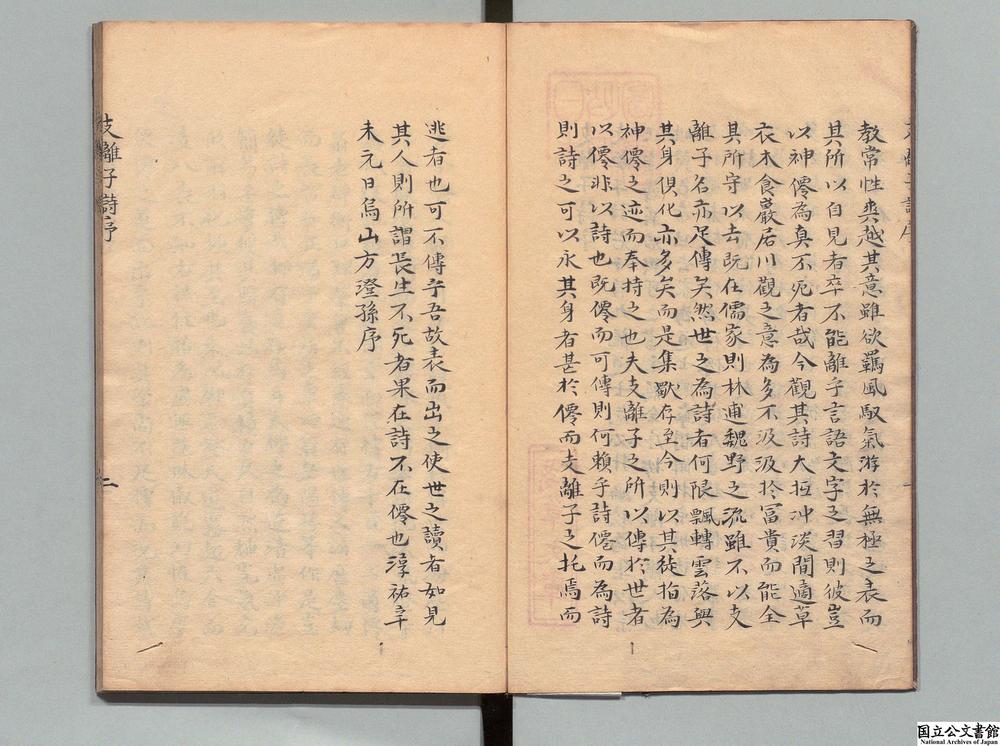 教常性爽越其意雖欲羈風馭氣游於無極之表而
其所以自見者卒不能離乎言語文字之習則彼豈
以神僊為真不死者哉今觀其詩大抵冲淡間適草
衣木食巖居川觀之意為多不汲汲於富貴而能全
其所守以去既在儒家則林逋魏野之流雖不以支
離子名亦足傳矣然世之為詩者何限飄轉雲落與
其身俱化亦多矣而是集歸存至今則以其徒指為
神僊之迹而奉持之也夫支離子之所以傳於世者
以僊非以詩也既僊而可傳則何賴乎詩僊而為詩
則詩之可以永其身者甚於僊而支離子之托焉而
逃者也可不傳乎吾故表而出之使世之讀者如見
其人則所謂長生不死者果在詩不在僊也淳祐辛
未元日烏山方澄孫序
支離子詩序
二
国立公文書館
National Archives of Japan